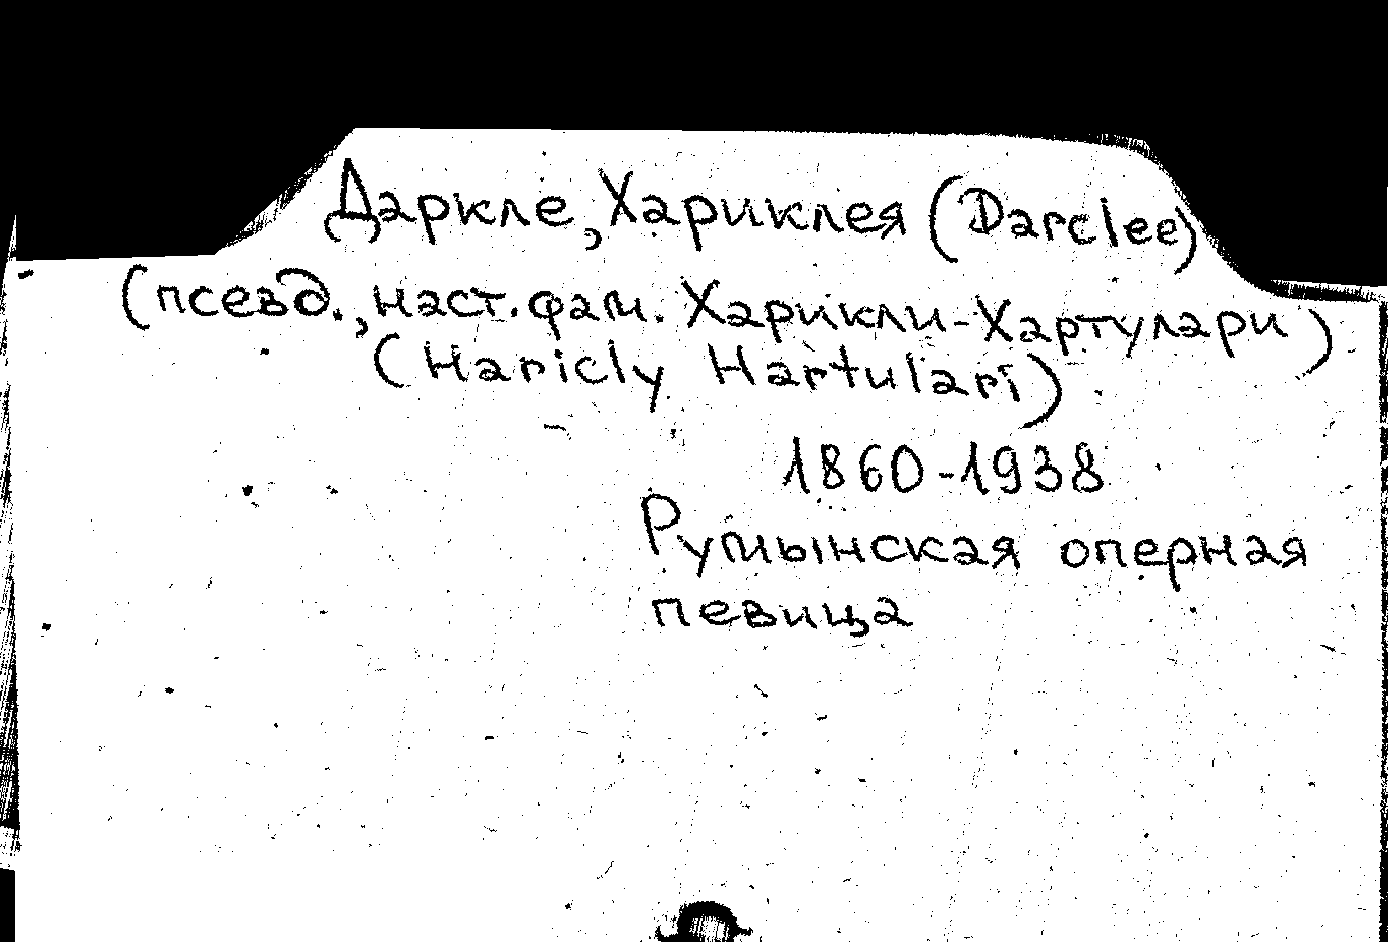 Даркле, Хариклея (Darclee)
(псевд., наст. фам. Харикли-Хартулари)
(Haricly Hartulari)
1860-1938
Румынская оперная
певица